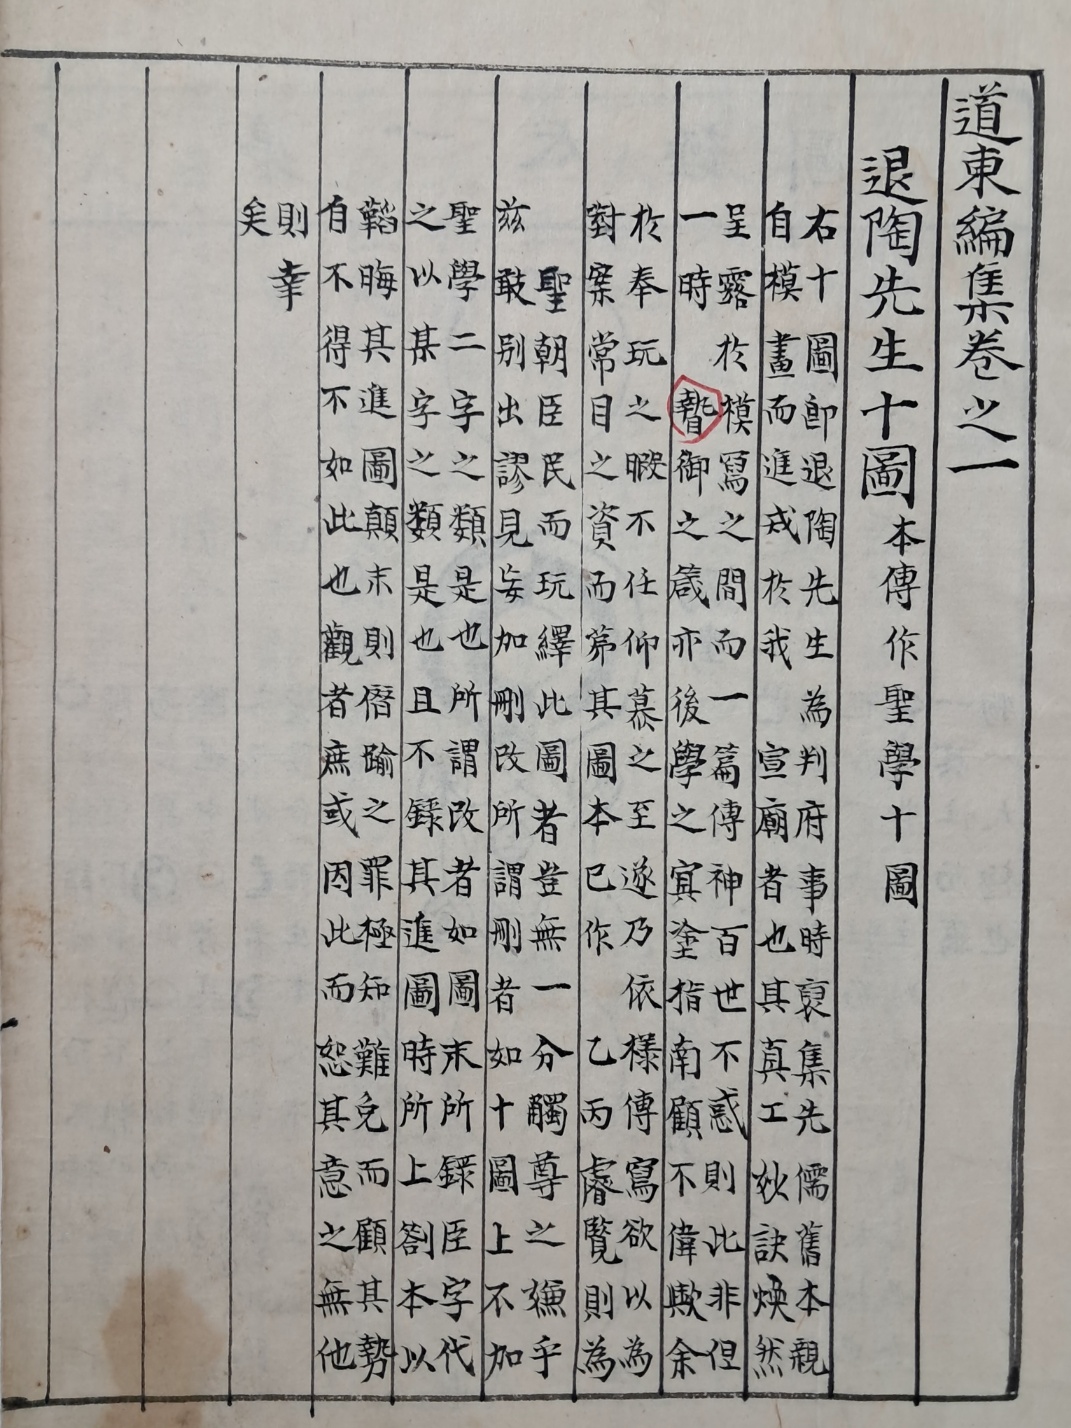 道東編集卷之一
退陶先生十圖 本傳作聖學十圖
右十圖卽退陶先生為判府事時裒集先儒舊本親
自模畫而進戒於我 宣廟者也其真工妙訣煥然
呈露於模寫之間而一篇傳神百世不惑則此非但
一時 暬御之箴亦後學之冥塗指南顧不偉歟余
於奉玩之暇不任仰慕之至遂乃依樣傳寫欲以為
對案常目之資而第其圖本已作 乙丙睿覽則為
聖朝臣民而玩繹此圖者豈無一分觸尊之嫌乎
玆敢別出謬見妄加刪改所謂刪者如十圖上不加
聖學二字之類是也所謂改者如圖末所錄臣字代
之以某字之類是也且不錄其進圖時所上劄本以
韜晦其進圖顛末則僭踰之罪極知難免而顧其勢
自不得不如此也觀者庶或因此而恕其意之無他
則幸
矣